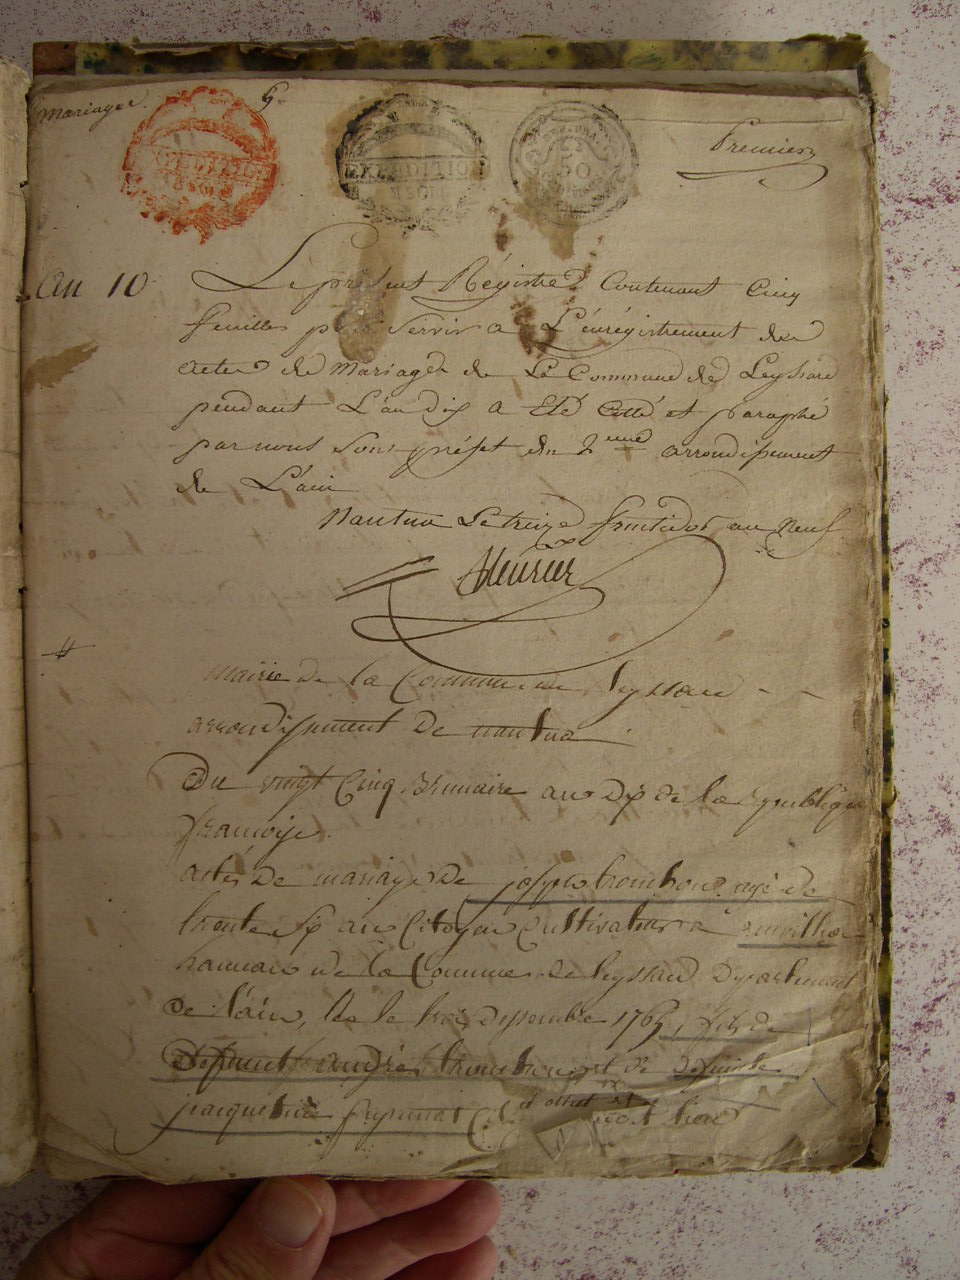 Mariages
Premier
EXPEDITION
50
An 10
Le présent Régistre Contenant Cinq
feuilles pour Servir a L'enrégistrement des
actes de Mariages de La Commune de Leyssard
pendant L'an dix a Eté Cotté et paraphé
par nous Sous préfet du 2eme arrondissement
de L'ain
Nantua Le treize fructidor an Neuf
mairie de la Commune de leyssard
arrondissement de nantua
Du vingt Cinq Brumaire an dix de la republique
francoise.
acte De mariage De joseph trombon agé de
trente six ans Citoyen Cultivateur a
hameau de la Commune de leyssard Departement
de l'ain, Né le trois Dessembre 1765, fils de
Defunt andré et de Defunte
jacquema